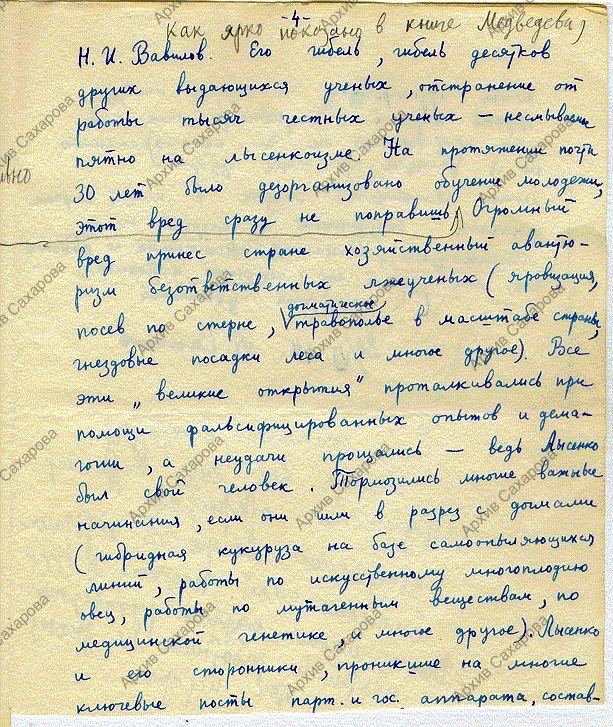 -4-
Как ярко показано в книге Медведева,
Н. И. Вавилов. Его гибель, гибель десятков
других выдающихся ученых, отстранение от
работы тысяч честных ученых — несмываемое
пятно на лысенкоизме. На протяжении почти
30 лет было дезорганизовано обучение молодежи,
этот вред сразу не поправишь. Огромный
вред принес стране хозяйственный авантю-
ризм безответственных лжеученых (яровизация,
догматическое
посев по стерне, травополье в масштабе страны,
гнездовые посадки леса и многое другое). Все
эти „великие открытия" проталкивались при
помощи фальсифицированных опытов и дема-
гогии, а неудачи прощались — ведь Лысенко
был свой человек. Тормозились многие важные
начинания, если они шли в разрез с догмами
(гибридная кукуруза на базе самоопыляющихся
линий, работы по искусственному многоплодию
овец, работы по мутагенным веществам, по
медицинской генетике, и многое другое). Лысенко
и его сторонники, проникшие на многие
ключевые посты парт. и гос. аппарата, состав-
Архив Сахарова